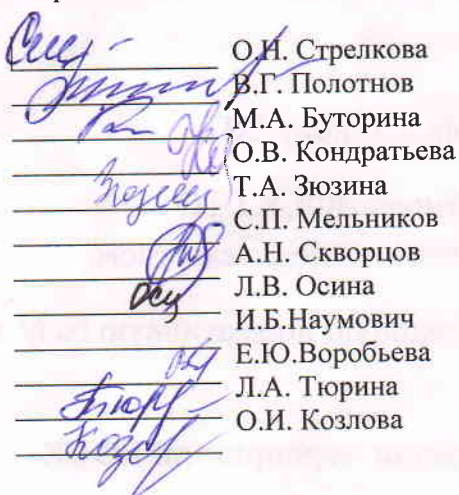 О.Н. Стрелкова
В.Г. Полотнов
М.А. Буторина
О.В. Кондратьева
Т.А. Зюзина
С.П. Мельников
А.Н. Скворцов
Осц Л.В. Осина
И.Б.Наумович
Е.Ю.Воробьева
Л.А. Тюрина
О.И. Козлова